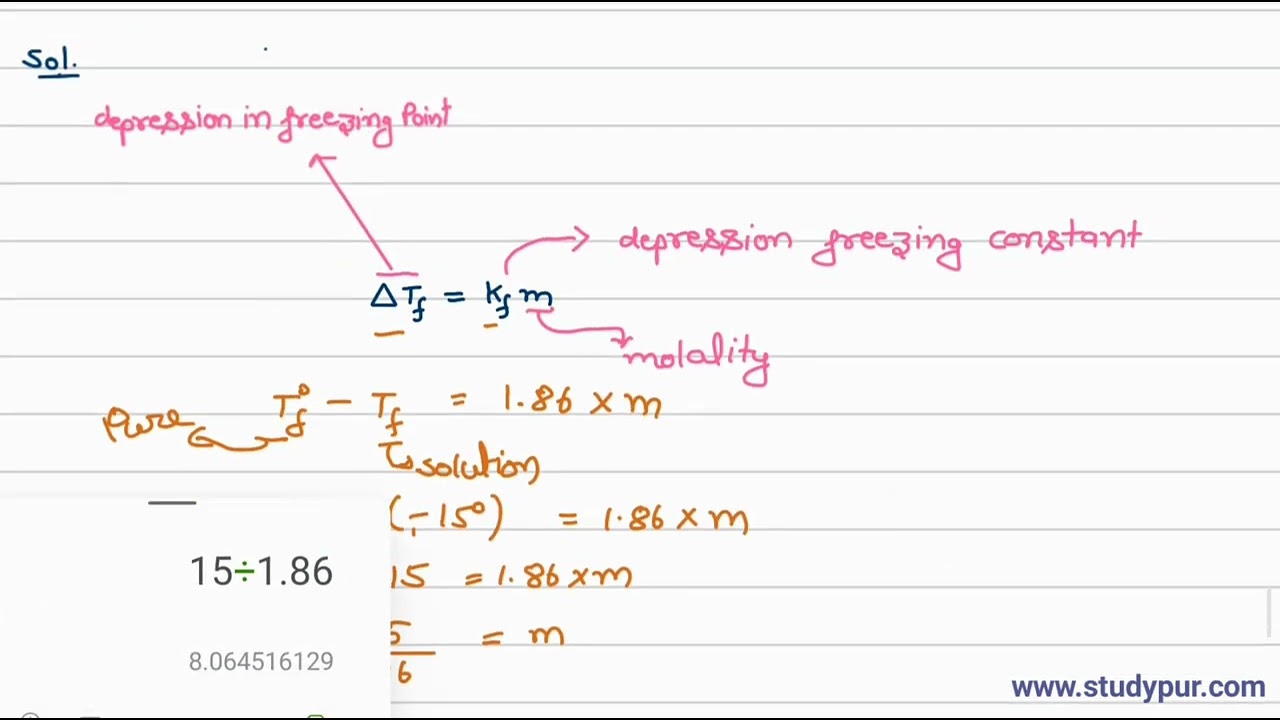 Sol.
depression in freezing Point
depression freezing constant
ΔTf = Kf m
molality
Pure Tf° - Tf = 1.86 × m
solution
(-15°) = 1.86 × m
15÷1.86
15 = 1.86 × m
5 = m
6
8.064516129
www.studypur.com